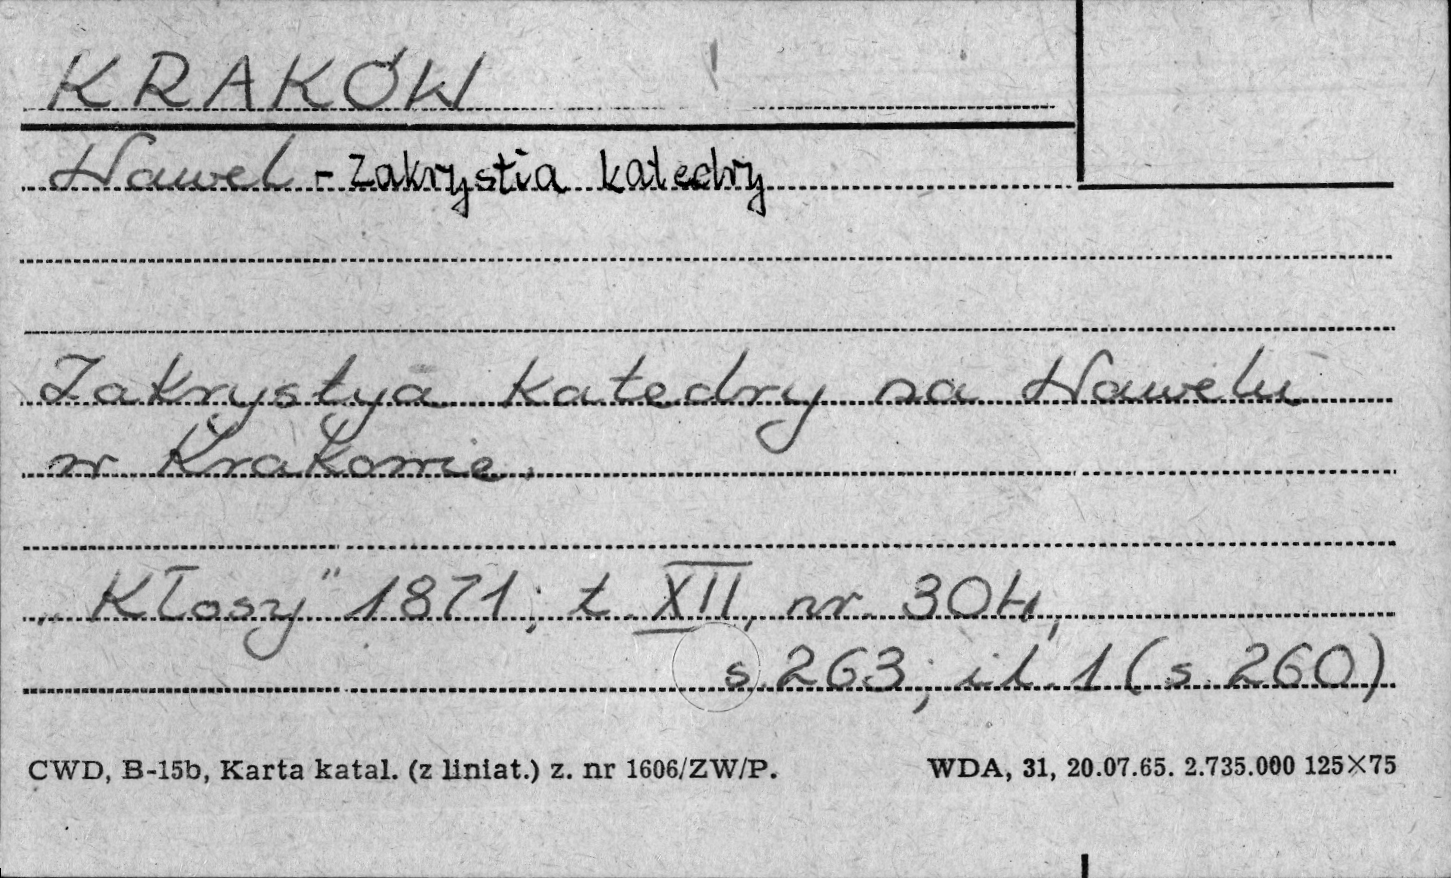 KRAKÓW
Wawel - Zakrystia katedry
Zakrystya katedry na Wawelu
w Krakowie.
„Kłosy" 1871; t. XII, nr. 304,
s. 263; il. 1 (s. 260)
CWD, B-15b, Karta katal. (z liniat.) z. nr 1606/ZW/P. WDA, 31, 20.07.65. 2.735.000 125×75